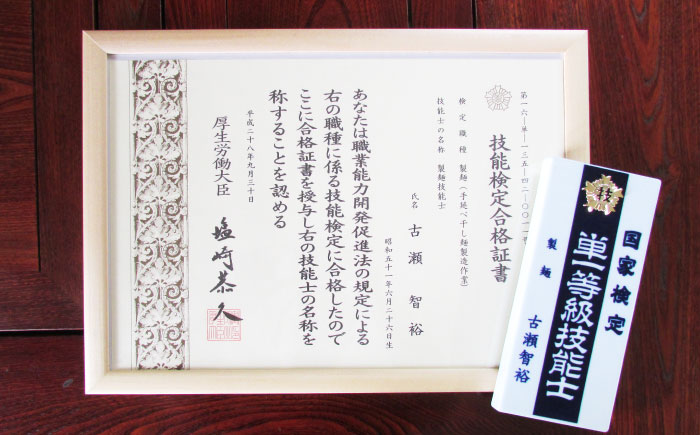 第一六―単―一三五―四二―〇〇一一号
技能検定合格証書
検定職種 製麺(手延べ干し麺製造作業)
技能士の名称 製麺技能士
氏名 古瀬智裕
昭和五十一年六月二十六日生
あなたは職業能力開発促進法の規定による
右の職種に係る技能検定に合格したので
ここに合格証書を授与し右の技能士の名称を
称することを認める
平成二十八年九月三十日
厚生労働大臣 塩崎恭久
技
国家検定
単一等級技能士
製麺 古瀬智裕